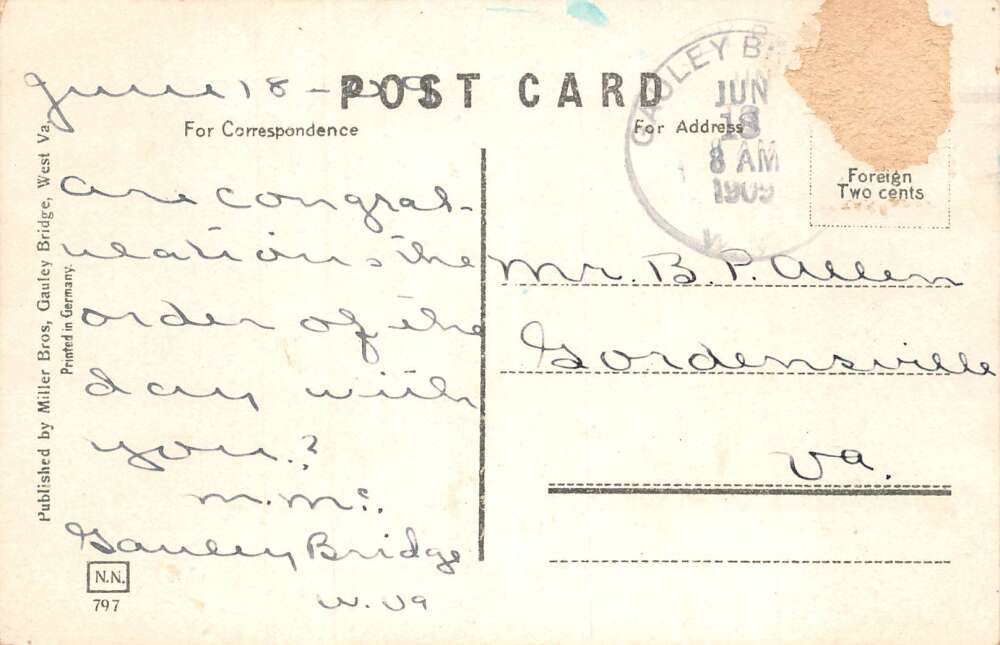 POST CARD
June 18 - 09
For Correspondence
For Address
GAULEY B
JUN
18
8 AM
1909
W.
Foreign
Two cents
are congrat-
ulations the
order of the
day with
you.?
M.Mc.
Gauley Bridge
W. Va
Mr. B. P. Allen
Gordensville
Va.
Published by Miller Bros, Gauley Bridge, West Va.
Printed in Germany.
N.N.
797